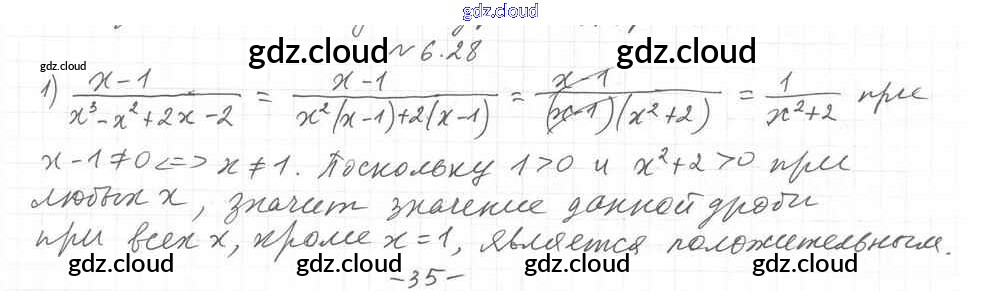 gdz.cloud
gdz.cloud gdz.cloud № 6.28 gdz.cloud
gdz.cloud
1) (x-1)/(x³-x²+2x-2) = (x-1)/(x²(x-1)+2(x-1)) = (x-1)/((x-1)(x²+2)) = 1/(x²+2) при
x-1≠0 <=> x≠1. Поскольку 1>0 и x²+2>0 при
любых x, значит значение данной дроби
при всех x, кроме x=1, является положительным.
gdz.cloud gdz.cloud -35- gdz.cloud gdz.cloud